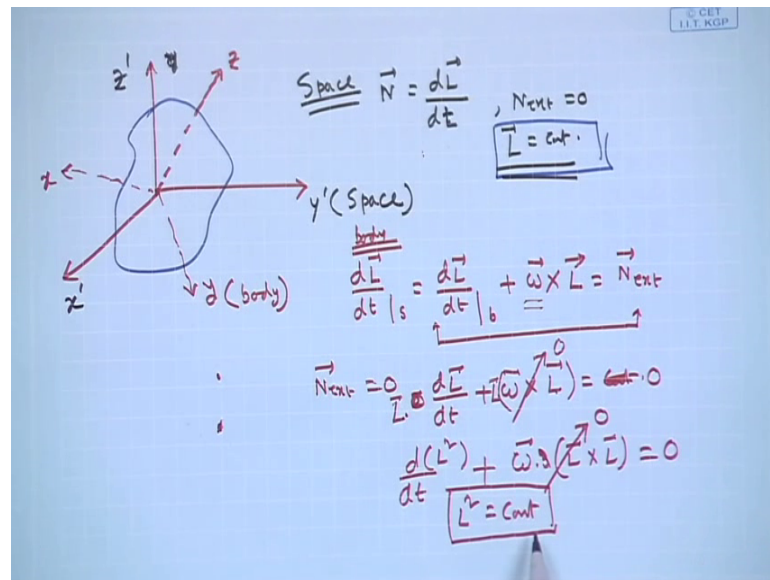 © CET
I.I.T. KGP
z'
z
x
y'(Space)
x'
y (body)
Space N⃗ = dL⃗/dt , N_ext = 0
L⃗ = cnt.
body
dL⃗/dt|_s = dL⃗/dt|_b + ω⃗ × L⃗ = N⃗_ext
N⃗_ext = 0
L⃗. dL⃗/dt + L⃗.(ω⃗ × L⃗) = 0
0
d(L²)/dt + ω⃗.(L⃗ × L⃗) = 0
0
L² = Cont